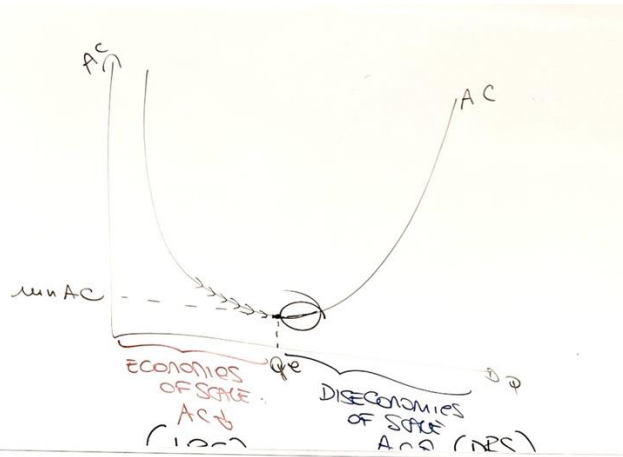 AC
AC
min AC
Qe
Q
ECONOMIES
OF SCALE
AC↓
DISECONOMIES
OF SCALE